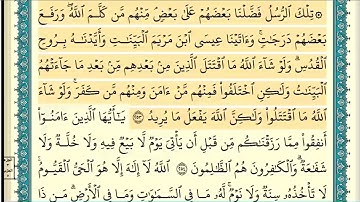 ۞ تِلۡكَ ٱلرُّسُلُ فَضَّلۡنَا بَعۡضَهُمۡ عَلَىٰ بَعۡضٖۘ مِّنۡهُم مَّن كَلَّمَ ٱللَّهُۖ وَرَفَعَ
بَعۡضَهُمۡ دَرَجَٰتٖۚ وَءَاتَيۡنَا عِيسَى ٱبۡنَ مَرۡيَمَ ٱلۡبَيِّنَٰتِ وَأَيَّدۡنَٰهُ بِرُوحِ
ٱلۡقُدُسِۗ وَلَوۡ شَآءَ ٱللَّهُ مَا ٱقۡتَتَلَ ٱلَّذِينَ مِنۢ بَعۡدِهِم مِّنۢ بَعۡدِ مَا جَآءَتۡهُمُ
ٱلۡبَيِّنَٰتُ وَلَٰكِنِ ٱخۡتَلَفُواْ فَمِنۡهُم مَّنۡ ءَامَنَ وَمِنۡهُم مَّن كَفَرَۚ وَلَوۡ شَآءَ
ٱللَّهُ مَا ٱقۡتَتَلُواْ وَلَٰكِنَّ ٱللَّهَ يَفۡعَلُ مَا يُرِيدُ ٢٥٣ يَٰٓأَيُّهَا ٱلَّذِينَ ءَامَنُوٓاْ
أَنفِقُواْ مِمَّا رَزَقۡنَٰكُم مِّن قَبۡلِ أَن يَأۡتِيَ يَوۡمٞ لَّا بَيۡعٞ فِيهِ وَلَا خُلَّةٞ وَلَا
شَفَٰعَةٞۗ وَٱلۡكَٰفِرُونَ هُمُ ٱلظَّٰلِمُونَ ٢٥٤ ٱللَّهُ لَآ إِلَٰهَ إِلَّا هُوَ ٱلۡحَيُّ ٱلۡقَيُّومُۚ
لَا تَأۡخُذُهُۥ سِنَةٞ وَلَا نَوۡمٞۚ لَّهُۥ مَا فِي ٱلسَّمَٰوَٰتِ وَمَا فِي ٱلۡأَرۡضِۗ مَن ذَا